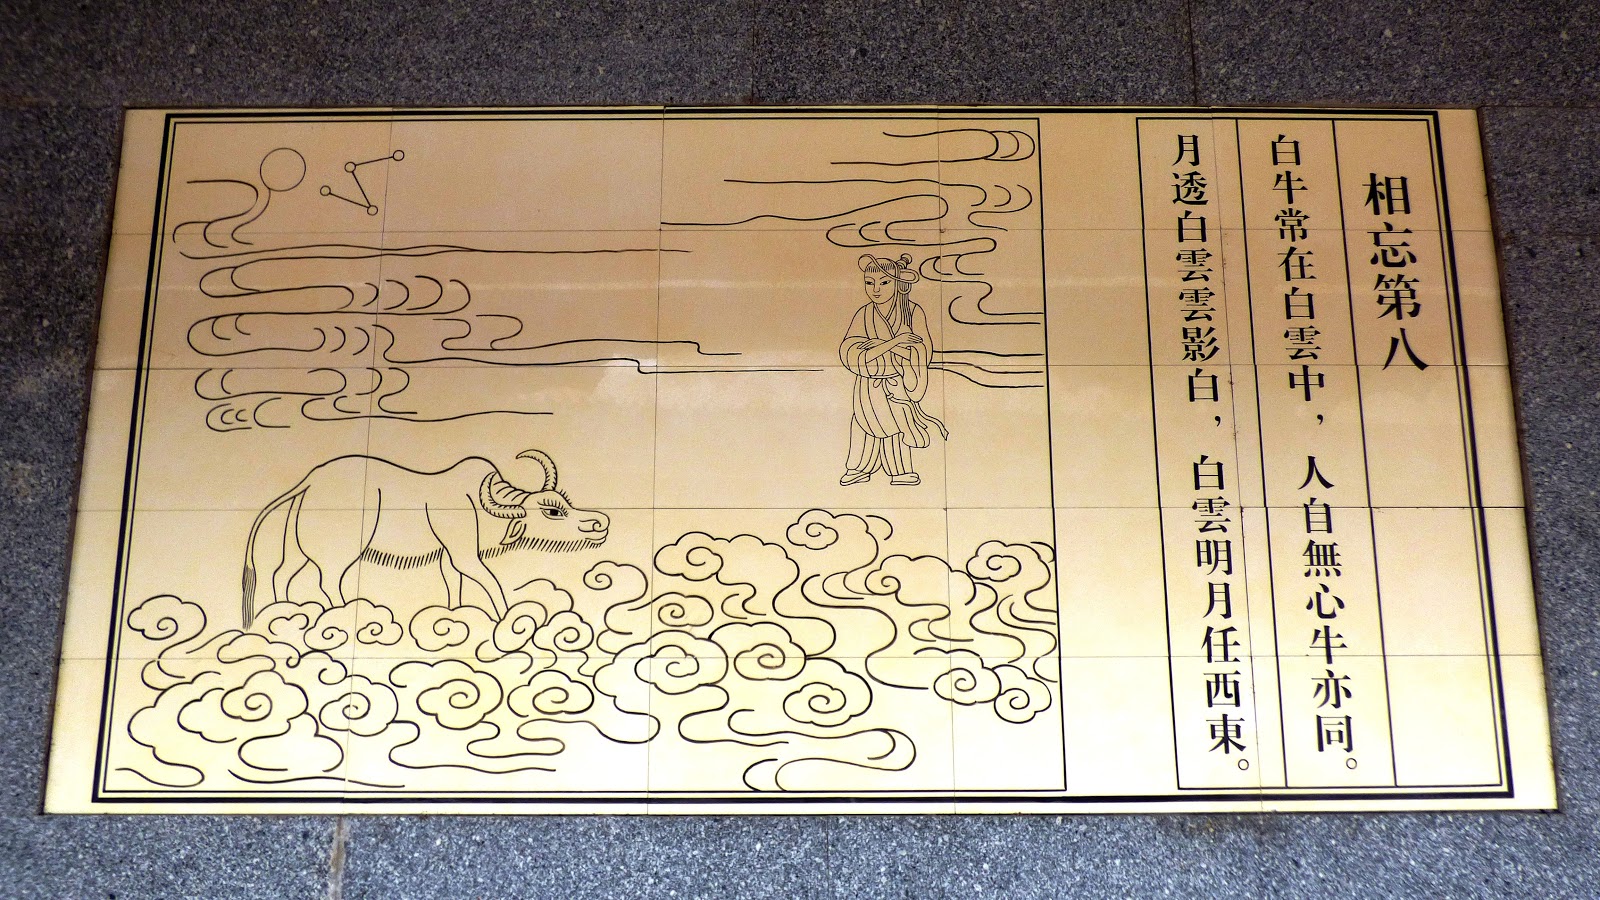 相忘第八
白牛常在白雲中，人自無心牛亦同。
月透白雲雲影白，白雲明月任西東。